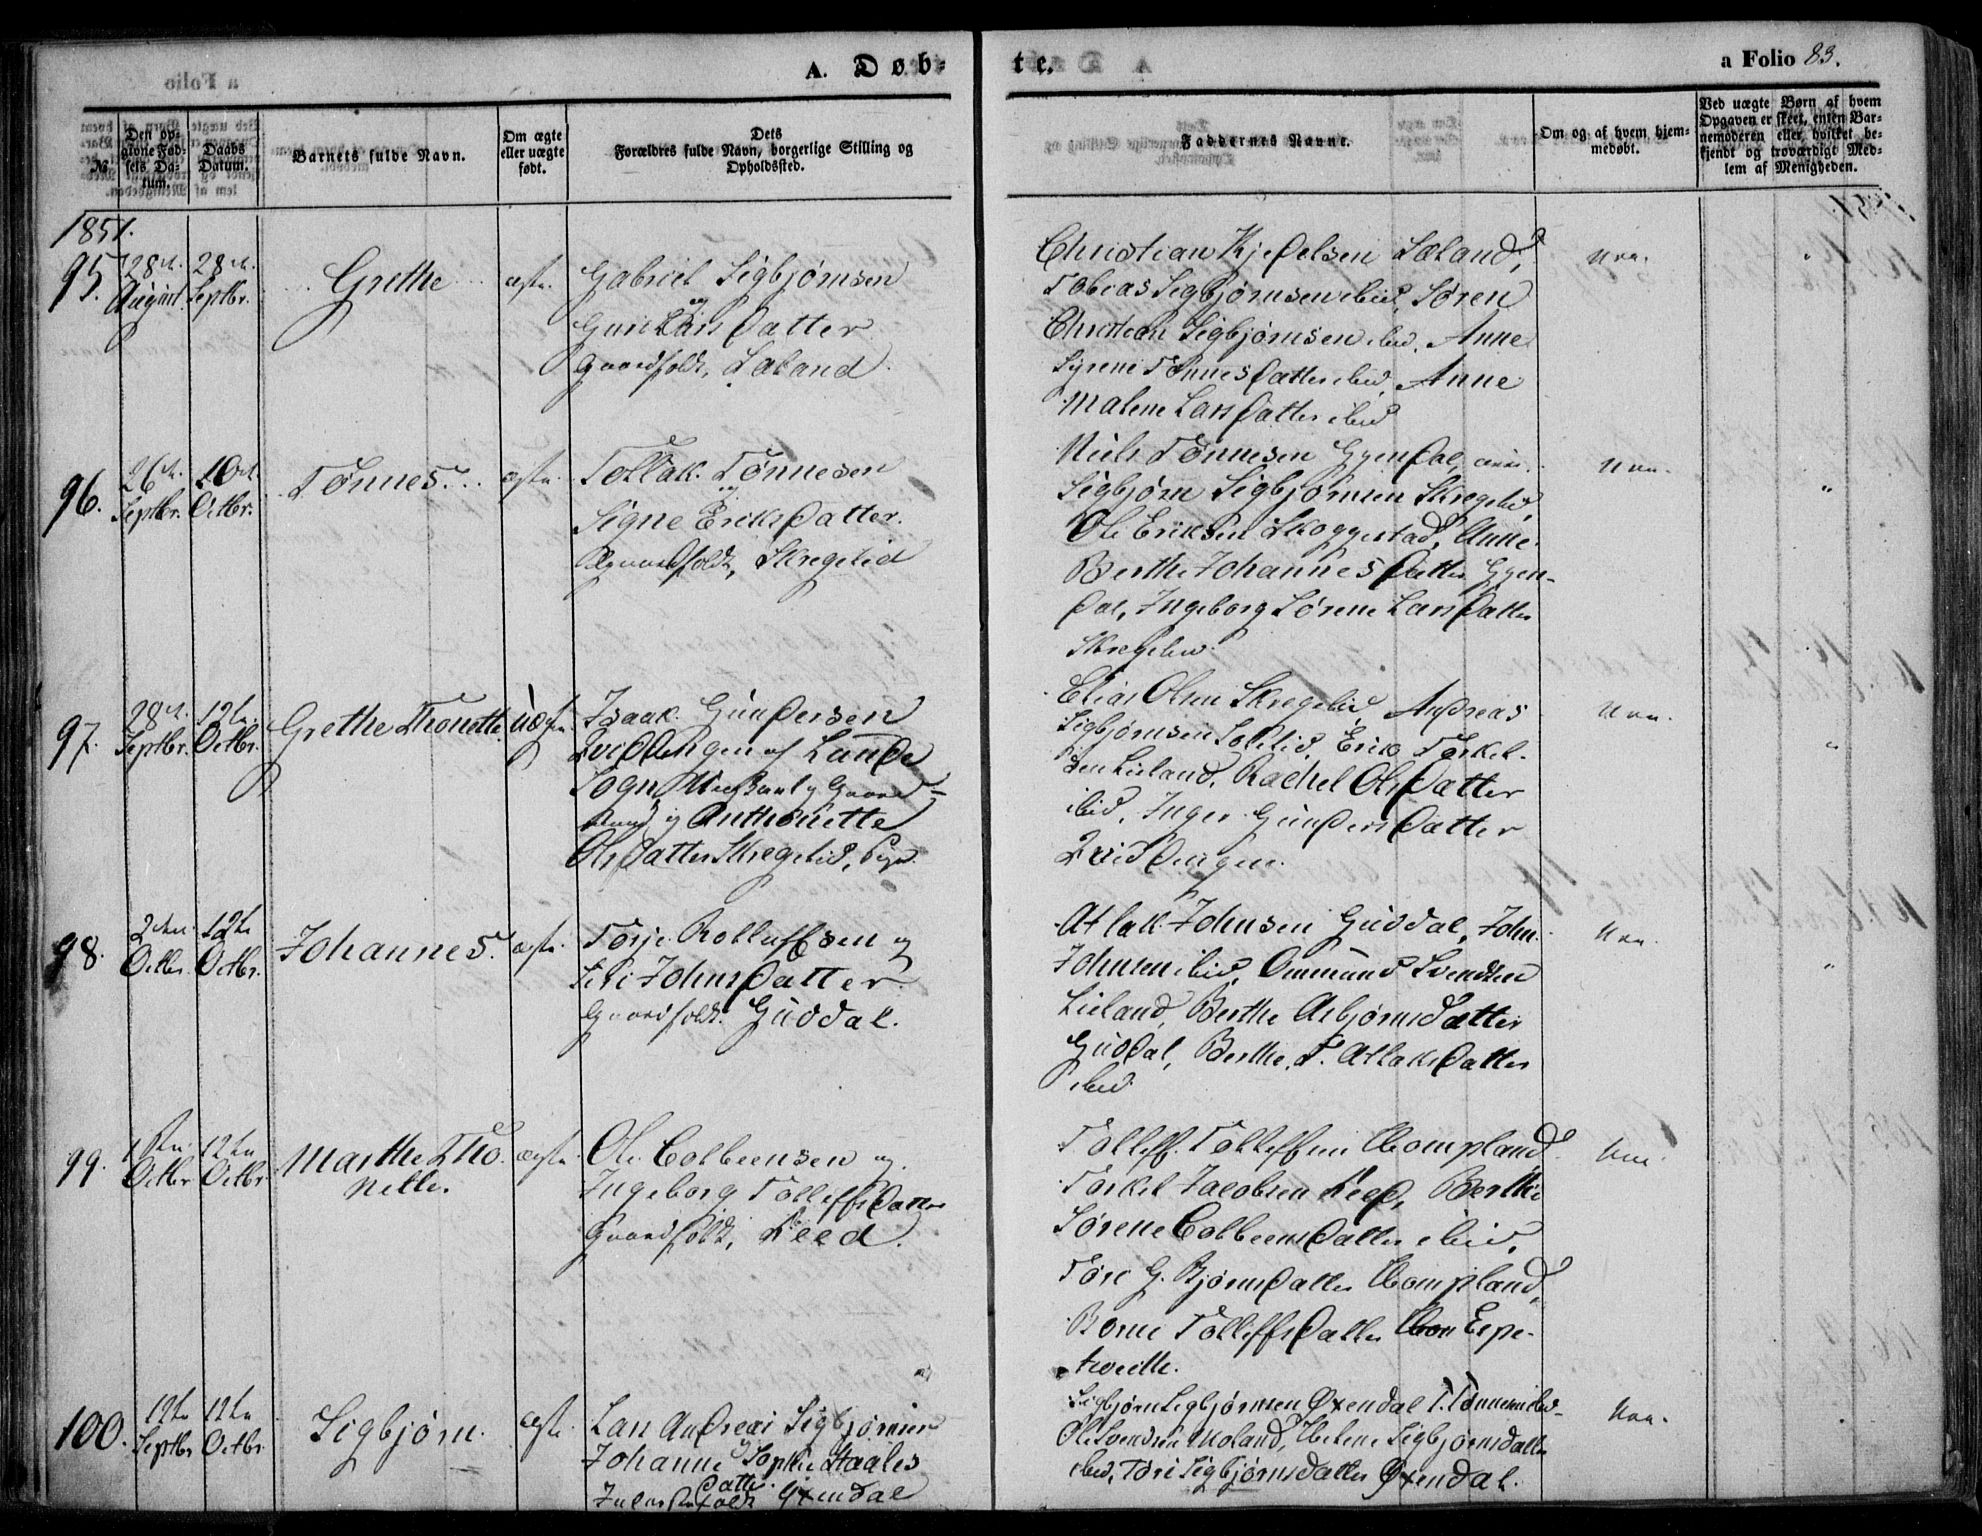 A. Døb-
te.
a Folio 83.
№
Den op-
givne Fød-
sels Da-
tum.
Daabs
Datum.
Barnets fulde Navn.
Om ægte
eller uægte
født.
Dets
Forældres fulde Navn, borgerlige Stilling og
Opholdssted.
Faddernes Navne.
Om og af hvem hjem-
medøbt.
Ved uægte Børn af hvem
Opgaven er skeet, enten Bar-
nemoderen eller hvilket be-
kjendt og troværdigt Med-
lem af Menigheden.
1851.
95.
28de
August
28de
Septbr.
Grethe
ægte.
Gabriel Sigbjørnsen
og
Guri Lars Datter
Gaardfolk, Saland.
Christian Kjedelsen Saland,
Tobias Sigbjørnsen ibid, Søren
Christian Sigbjørnsen ibid, Anne
Syrene Tønnes Datter ibid, Anne
Malene Lars Datter ibid
96.
26de
Septbr.
10de
Octbr.
Tønnes.
ægte.
Tollak Tønnesen
og
Signe Eriks Datter.
Gaardfolk, Skregelid
Niels Tønnesen Gyendal,
Sigbjørn Sigbjørnsen Skregelid,
Ole Eriksen Skoggestad, Anne
Berthe Johannes Datter Gyen-
dal, Ingeborg Sørene Lars Datter
Skregelid.
97.
28de
Septbr.
12te
Octbr.
Grethe Thonette
uægte.
Isaak Gundersen
Qviddingen af Lunde
Sogn, Ungkarl, Gaard-
mand og Anthonette
Ols Datter Skregelid, Pige.
Elias Olsen Skregelid, Andreas
Sigbjørnsen Solelid, Erik Torkel-
sen Lieland, Rachel Ols Datter
ibid, Inger Gunders Datter
Qviddingen.
98.
2den
Octbr.
12te
Octbr.
Johannes.
ægte.
Torje Rolleffsen og
Siri Johns Datter
Gaardfolk. Guddal.
Atlak Johnsen Guddal, John
Johnsen ibid, Ommund Svendsen
Lieland, Berthe Asbjørnsdatter
Guddal, Berthe T. Atlaks Datter
ibid.
99.
1ste
Octbr
12te
Octbr
Marthe Tho-
nelle.
ægte.
Ole Colbeensen og
Ingeborg Tolleffs Datter
Gaardfolk, Reed.
Tolleff Tolleffsen Compland
Torkel Jacobsen Reed, Berthe
Sørene Colbeens Datter ibid,
Tøre G. Bjørns Datter Compland,
Tolleffs Datter Espe-
tveitte.
100.
19te
Septbr
12te
Octbr
Sigbjørn.
ægte.
Lars Andreas Sigbjørnsen
og
Johanne Sophie Staales
Datter
Øxendal
Sigbjørn Sigbjørnsen Øxendal, T. Tønnesen ibid,
Ole Svendsen Moland, Helene Sigbjørnsdatter
ibid, Tøri Sigbjørns Datter Øxendal.